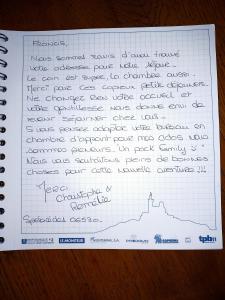 Francis,
Nous sommes ravis d'avoir trouvé
votre adresse pour notre séjour.
Le coin est super, la chambre aussi.
Merci pour ces copieux petits déjeuners.
Ne changez rien votre accueil et
votre gentillesse nous donne envi de
revenir séjourner chez vous.
Si vous pensez adapter votre bureau en
chambre d'appoint pour nos ados nous
sommes preneurs. Un pack family
Nous vous souhaitons pleins de bonnes
choses pour cette nouvelle aventure !!!
Merci
Christophe &
Spéracèdes 06530.
LE MONITEUR
tpbm